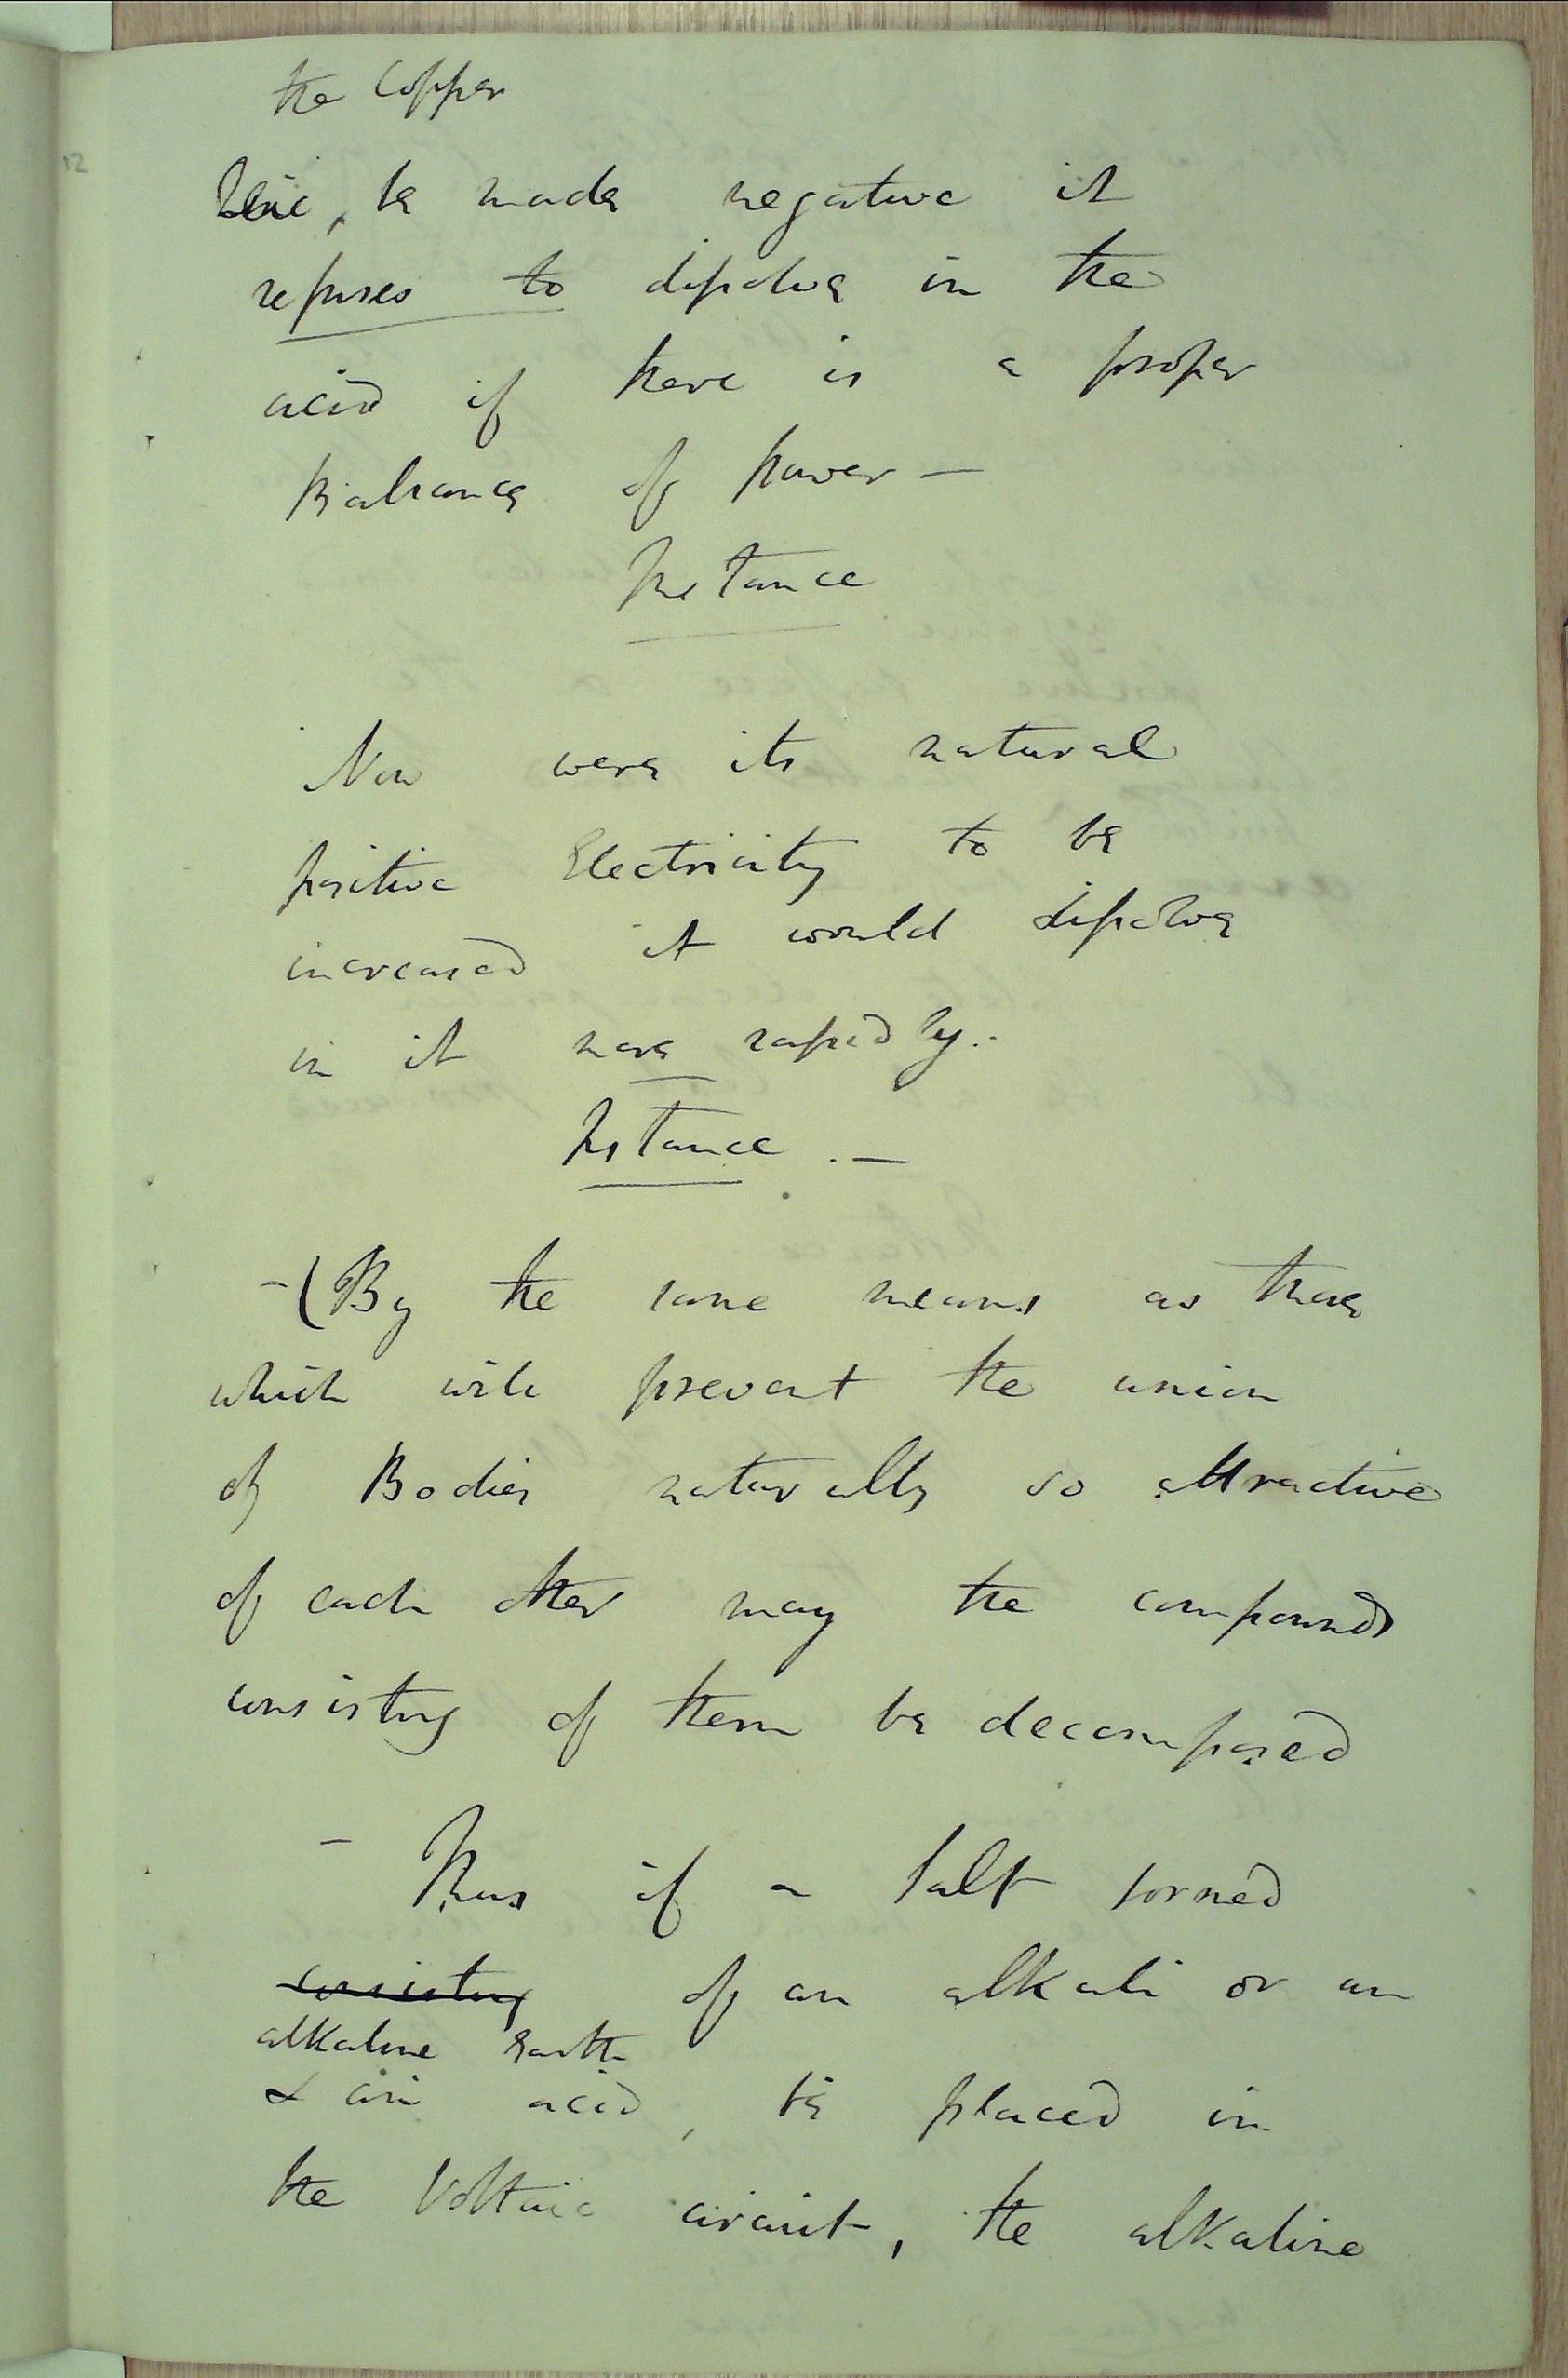 the Copper
Zinc, be made negative it
refuses to dissolve in the
acid if there is a proper
Balance of power —
Instance
Now were its natural
positive Electricity to be
increased it would dissolve
in it more rapidly..
Instance . —
- (By the same means as those
which will prevent the union
of Bodies naturally so attractive
of each other may the compounds
consisting of them be decomposed
- Thus if a Salt formed
consisting of an alkali or an
alkaline Earth
& an acid, be placed in
the Voltaic circuit, the alkaline
12